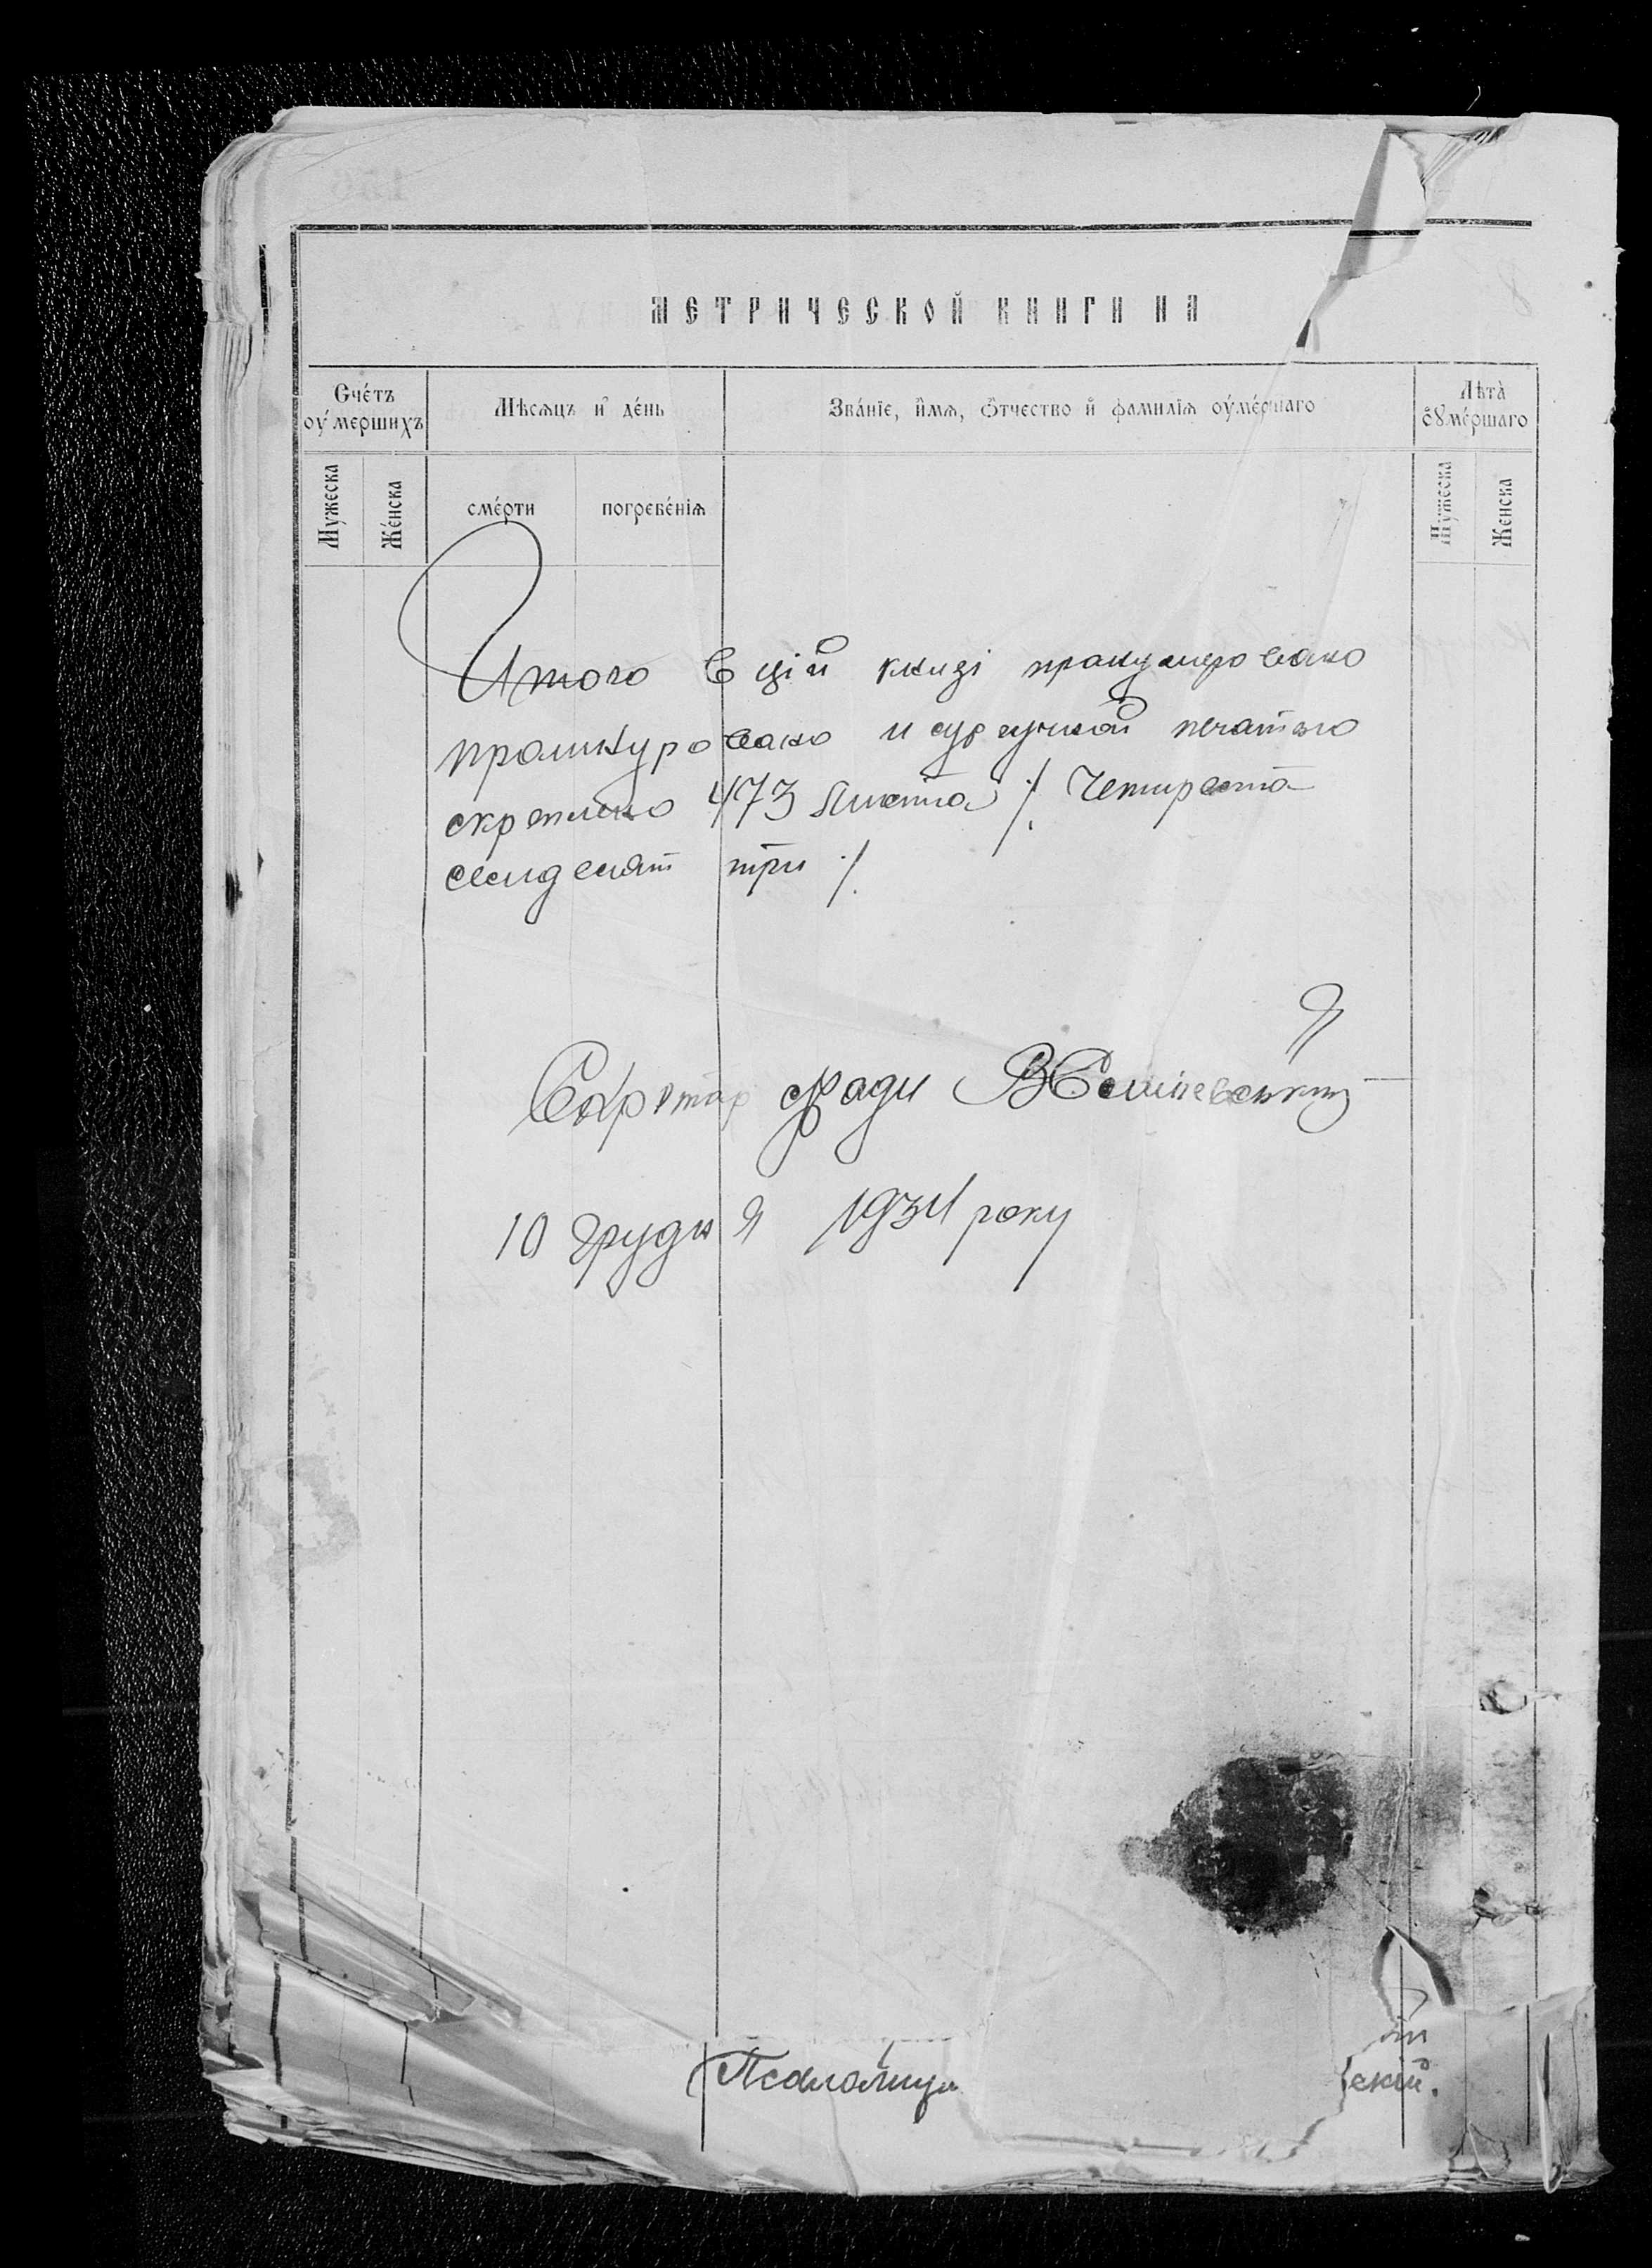 МЕТРИЧЕСКОЙ КНИГИ НА
Счéтъ оу́мершихъ
Мѣсѧцъ и҆ де́нь
Зва́нїе, и҆́мѧ, ѻ҆́тчество и҆ фамилїѧ оу҆ме́ршаго
Лѣта̀ ᲂу҆ме́ршаго
Мужеска
Же́нска
сме́рти
погребе́нїѧ
Мужеска
Женска
Итого в цій книзі пранумеровано
прошнуровано и сургучной печатью
скреплено 473 листа ·/. Четиреста
семдесят три ·/.
Секретар ради
10 Грудня 1934 року
Псаломщик
скій.